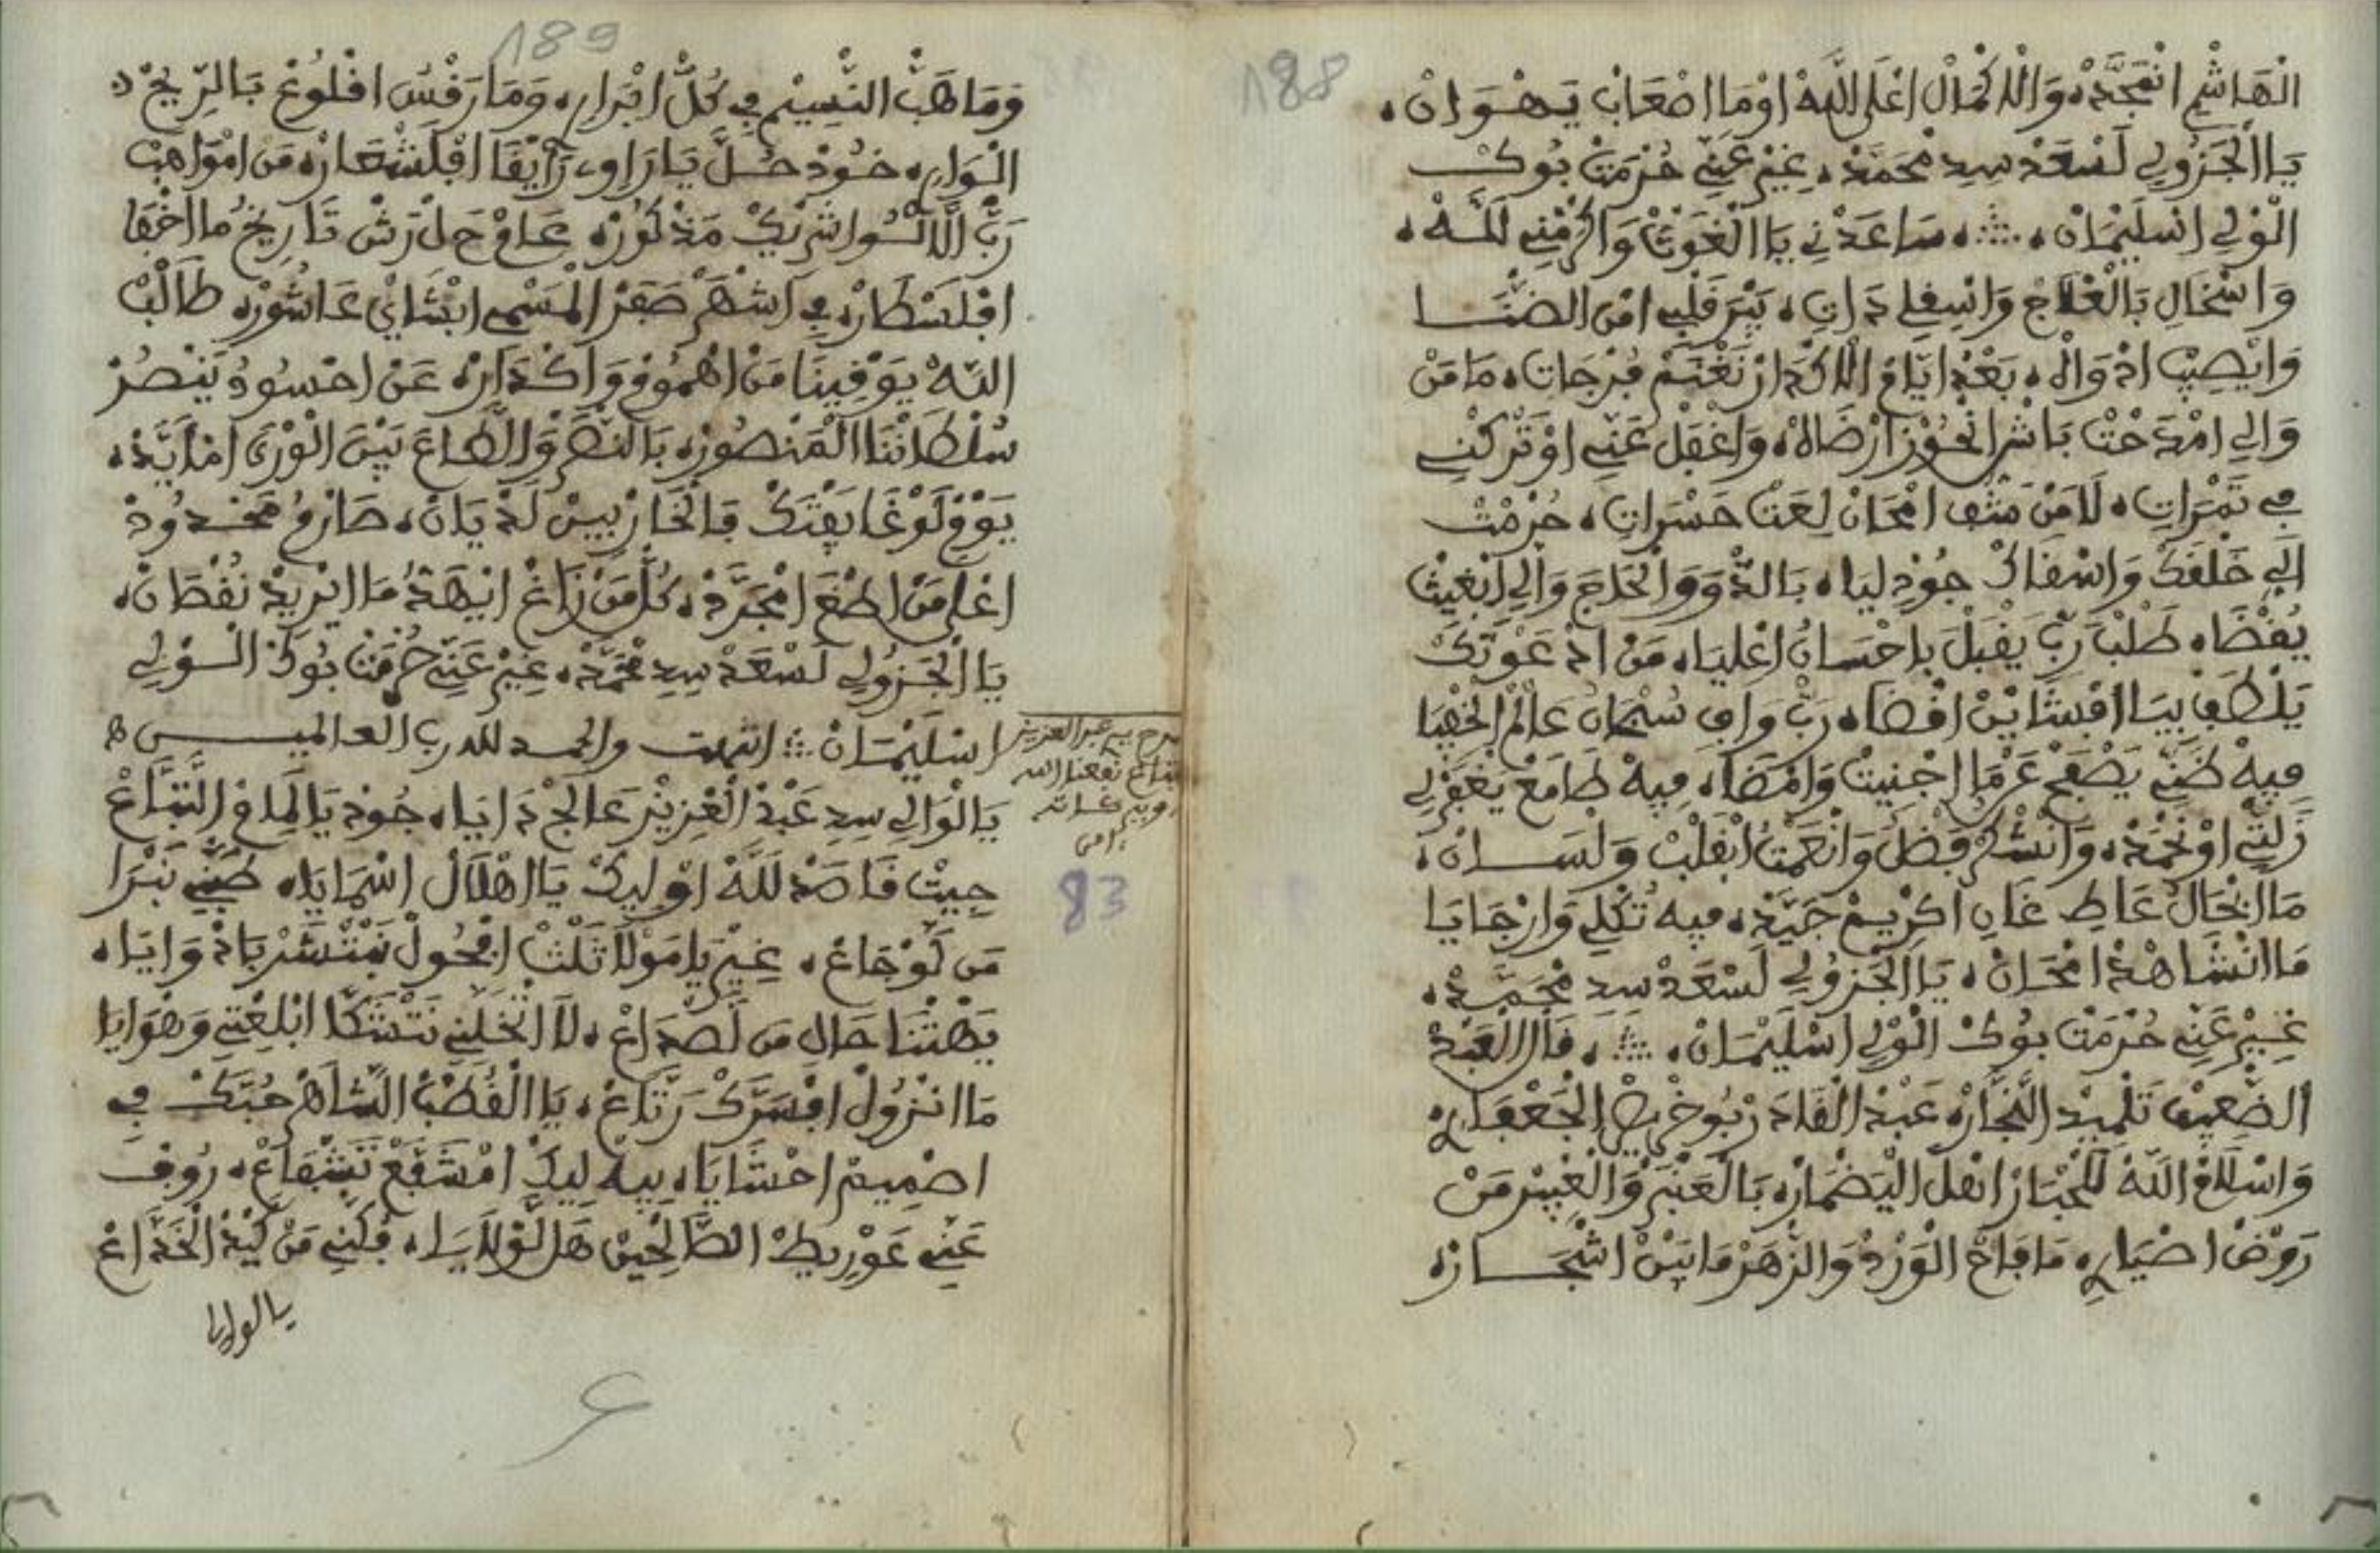 188
الْهَاشْمِ انْمَجَّدْ، وَاللَّا كْمَالْ اعْلَى اللَّهْ اوْمَا اصْعَابْ يَـهْـوَانْ،
يَا الْجَزُولِي لَسْعَدْ سِدِ مْحَمَّدْ، غِيرْ عَنِّي حُرْمَتْ بُوكْ
الْوْلِي اسْلَيْمَانْ، ۞، سَاعَدْنِي يَا الْغَوْثْ وَاكْرَمْنِي لَلَّهْ،
وَاسْخَالِي بَالْعْلَاجْ وَاسْقِي دَاتِ، يَبْرَ قَلْبِي امْنِ الضْنَا
وَايْصِيبْ ادْوَاهْ، بَعْدْ ايَّامْ اللَّا كْدَارْ نَغْنَمْ فُرْجَاتِ، مَا مَنْ
وَالِي امْدَحْتْ بَاشْ انْحُوزْ ارْضَاهْ، وَاغْفَلْ عَنِّي اوْ تَرْكْنِي
فِي تَمْرَاتِ، لَا مَنْ امْحَانْ لِعَتْ حَسْرَاتِ، حُرْمْتْ
الِّي خَلْقَكْ وَاسْقَاكْ جُودْ لِيَا، بَالدْوَ وَالْحَاجَ وَالِّي ابْغِيتْ
يُقْضَا، طَلْبْ رَبِّ يَقْبَلْ بِاحْسَانُ اعْلِيَا، مَنْ ادْعَوْتَكْ
يَلْطَفْ بِيَا افْشَايَنْ اقْضَا، رَبِّ وَافِ سُبْحَانُ عَالَمْ الْخْفِيَا
فِيهْ ظَنِّي يَصْفَحْ عَرْمَا اجْنِيتْ وَامْضَا، فِيهْ طَامَعْ يَغْفَرْ لِي
زَلْتِي اوْ نَحْمَدْ، وَانْشْكَرْ فَضْلُ وَانْعَمْتُ ابْقَلْبْ وَلْسَـانْ،
مَا ايْخَالْ عَاطِ غَانِ اكْرِيمْ جَيَّدْ، فِيهْ تُكْلِي وَارْجَايَا
مَا انْشَاهْدْ امْحَـانْ، يَا الْجَزُولِي لَسْعَدْ سِدِ مْحَمَّـدْ،
غِيرْ عَنِّي حُرْمَتْ بُوكْ الْوْلِي اسْلَيْمَـانْ، ۞، قَالْ الْعَبْدْ
الضْعِيفْ تَلْمِيدْ النَّجَّارْ، عَبْدْ الْقَادَرْ بُوخْرِيصْ الْجَعْفَارِي،
وَاسْلَامْ اللَّهْ لَلْحْبَارْ اهْلَ الْيَضْمَارْ، بَالْعَنْبَرْ وَالْغْبِيرْ مَنْ
رَوْضْ اضْيَارِ، مَا فَاحْ الْوَرْدْ وَالزْهَرْ مَا بَيْنْ اشْجَـارْ،
189
وَمَا هَبّْ النْسِيمْ فِي كُلّْ ابْرَارِ، وَمَا رَفْسْ افْلُوعْ بَالرِّيحْ فْ
الْـوَارِ، خُودْ حُـلَّ يَا رَاوِي رَايْقَا افْلَشْعَارْ، مَنْ امْوَاهَبْ
رَبّْ الَّا السُّوا شْرِيكْ مَذْكُورْ، عَامْ حَلْ رَشْ تَارِيخُ مَا اخْفَا
افْلَسْطَارْ، فِي اشْهَرْ صَفَرْ الْمَسْمِي ابْشَايْ عَاشُورْ، طَالْبْ
اللَّهْ يَوْقِينَا مَنْ اهْمُومْ وَاكْـدَارْ، عَنْ احْسُودُ يَنْصُرْ
سُلْطَانْنَا الْمَنْصُورْ، بَالنَّصْرْ وَالطَّاعَ بَيْنْ الْوْرَى امْأَيَّدْ،
يَوْمْ لَوْغَا يَفْتَكْ فَالْحَارْبِينْ لَدْيَانْ، صَارْمُ مَحْـدُودْ
اعْلَى مَنْ اطْغَى امْجَرَّدْ، كُلّْ مَنْ زَاغْ انْهَدُّ مَا ايْرِيدْ نُقْطَانْ،
يَا الْجَـزُولِي لَسْعَدْ سِدِ مْحَمَّدْ، غِيرْ عَنِّي حُرْمَتْ بُوكْ الْـوْلِي
اسْلَيْمَـانْ ۞ انتهت والحمد لله رب العالميـــن ه
مدح سي عبد العزيز
التباع نفعنا الله
به
امين
83
يَا الْوَالِي سِدِ عَبْدْ الْعْزِيزْ عَالَجْ دَايَا، جُودْ يَا لِمَامْ التَّبَّاعْ
جِيتْ قَاصَدْ لَلَّهْ اوْلِيكْ يَا اهْلَالْ اسْمَايَا، ظَنِّي نَبْرَا
مَن لَوْجَاعْ، غِيرْ يَا مَوْلَا ثَلْثْ افْحُولْ نَنْشْرْ بَادْوَايَا،
يَهْتْنَا حَالِي مَن لَصْدَاعْ، لَا اتْخَلِّنِي نَتْشَكَّا ابْلِعْتِي وَهْوَايَا
مَا انْزُولْ افْسَرَّكْ رَتَّاعْ، يَا الْقُطْبْ الشَّاهَرْ حُبَّكْ فِي
اصْمِيمْ احْشَايَا، بِيهْ لِيكْ امْشَفَّعْ تَشْفَاعْ، رُوفْ
عَنِّي عَوْرِيطْ الصَّالْحِينْ هَلْ لَوْلَايَا، فَكْنِي مَنْ كِيدْ الْخَدَّاعْ
يا لولايا